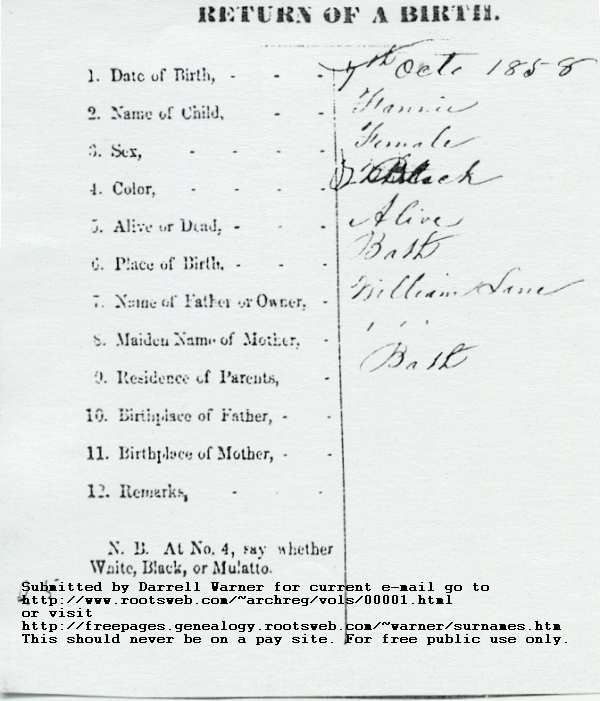 RETURN OF A BIRTH.
1. Date of Birth, - - - 7th Octo 1858
2. Name of Child, - - Fannie
3. Sex, - - - - Female
4. Color, - - - - Black
5. Alive or Dead, - - - Alive
6. Place of Birth, - - - Bath
7. Name of Father or Owner, - William Lane
8. Maiden Name of Mother, - , , ,
9. Residence of Parents, - Bath
10. Birthplace of Father, - -
11. Birthplace of Mother, - -
12. Remarks, - - -
N. B. At No. 4, say whether
White, Black, or Mulatto.
Submitted by Darrell Warner for current e-mail go to
http://www.rootsweb.com/~archreg/vols/00001.html
or visit
http://freepages.genealogy.rootsweb.com/~warner/surnames.htm
This should never be on a pay site. For free public use only.